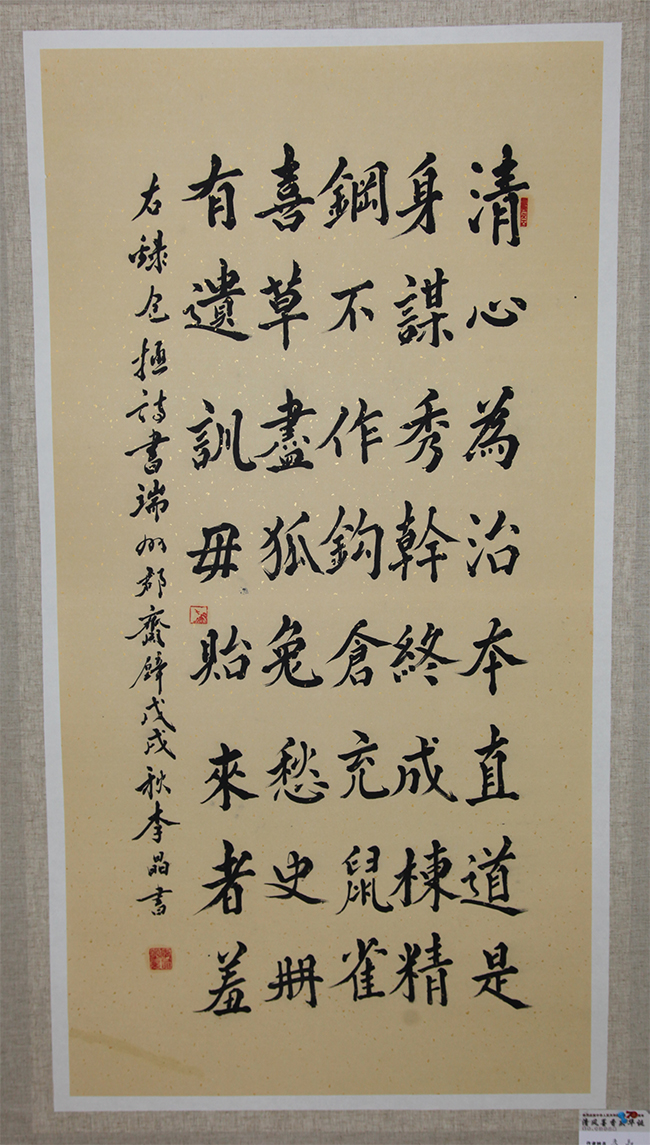 清心為治本直道是
身謀秀幹終成棟精
鋼不作鈎倉充鼠雀
喜草盡狐兔愁史冊
有遺訓毋貽來者羞
右錄包拯詩書端州郡齋壁戊戌秋李晶書